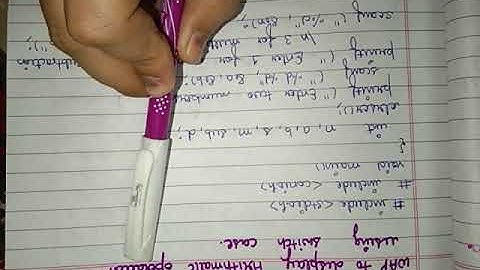 WAP to display Arithmatic
using switch case.
# include <stdio.h>
# include <conio.h>
void main()
{
int n, a, b, s, m, sub, d;
clrscr();
printf ("Enter two numbers
scanf ("%d", &a, &b);
printf ("Enter 1 for
\n 3 for
scanf ("%d", &n);